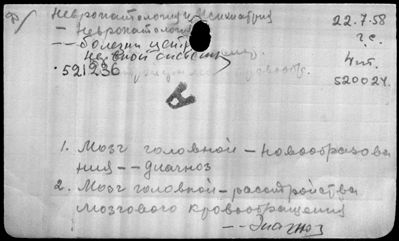 Невропатология и психиатрия
22.7.58
— Невропатология
г.с.
—— болезни центр
нервной системы
4 шт.
521236
520024.
1. Мозг головной — новообразова
ния —— диагноз
2. Мозг головной — расстройства
мозгового кровообращения
—— Диагноз